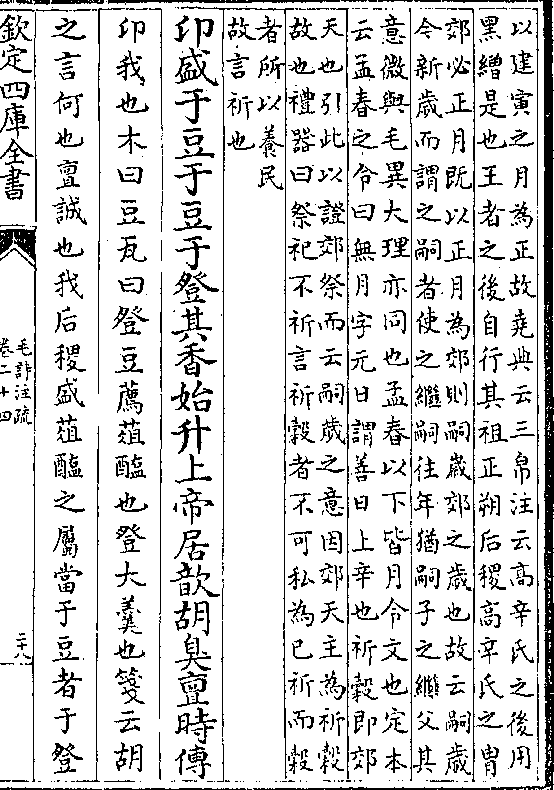 以建寅之月為正故堯典云三帛注云高辛氏之後用
黑繒是也王者之後自行其祖正朔后稷高辛氏之胄
郊必正月既以正月為郊則嗣歲郊之歲也故云嗣歲
今新歲而謂之嗣者使之繼嗣往年猶嗣子之繼父其
意微與毛異大理亦同也孟春以下皆月令文也定本
云孟春之令曰無月字元日謂善日上辛也祈穀即郊
天也引此以證郊祭而云嗣歲之意因郊天主為祈穀
故也禮器曰祭祀不祈言祈穀者不可私為已祈而穀
者所以養民
故言祈也
卬盛于豆于豆于登其香始升上帝居歆胡臭亶時傳
卬我也木曰豆瓦曰登豆薦葅醢也登大羮也箋云胡
之言何也亶誠也我后稷盛葅醢之屬當于豆者于登
欽定四庫全書
毛詩注疏
卷二十四
二十八